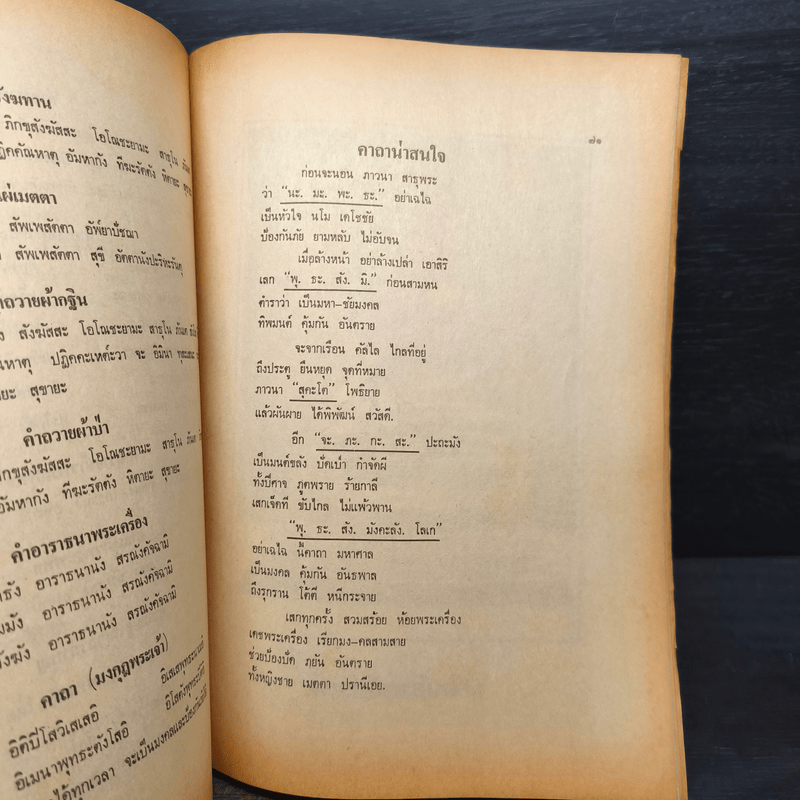 ังฆทาน
ภิกขุสังฆัสสะ โอโณชะยามะ สาธุโน ภันเต
ปฏิคคัณหาตุ อัมหากัง ทีฆะรัตตัง หิตายะ สุขา
แผ่เมตตา
สัพเพสัตตา อัพ์ยาปัชฌา
สัพเพสัตตา สุขี อัตตานังปะริหะรันตุ
คำถวายผ้ากฐิน
สังฆัสสะ โอโณชะยามะ สาธุโน ภันเต
ปฏิคคะเหต๎วา จะ อิมินา ทุสเสนะ
สุขายะ
คำถวายผ้าป่า
ภิกขุสังฆัสสะ โอโณชะยามะ สาธุโน ภันเต
อัมหากัง ทีฆะรัตตัง หิตายะ สุขายะ
คำอาราธนาพระเครื่อง
อาราธนานัง สรณังคัจฉามิ
อาราธนานัง สรณังคัจฉามิ
อาราธนานัง สรณังคัจฉามิ
คาถา (มงกุฎพระเจ้า)
อิติปิโสวิเสเสอิ อิเสเสพุทธะนาเมอิ
อิเมนาพุทธะตังโสอิ อิโสตังพุทธะปิติอิ
ได้ทุกเวลา จะเป็นมงคลและป้องกันภัยได้
๗๑
คาถาน่าสนใจ
ก่อนจะนอน ภาวนา สาธุพระ
ว่า “นะ. มะ. พะ. ธะ.” อย่าเฉไฉ
เป็นหัวใจ นโม เตโชชัย
ป้องกันภัย ยามหลับ ไม่อับจน
เมื่อล้างหน้า อย่าล้างเปล่า เอาสิริ
เสก “พุ. ธะ. สัง. มิ.” ก่อนสามหน
ตำราว่า เป็นมหา–ชัยมงคล
ทิพมนต์ คุ้มกัน อันตราย
จะจากเรือน คัลไล ไกลที่อยู่
ถึงประตู ยืนหยุด จุดที่หมาย
ภาวนา “สุคะโต” โพธิยาย
แล้วผันผาย ได้พิพัฒน์ สวัสดี.
อีก “จะ. ภะ. กะ. สะ.” ปะถะมัง
เป็นมนต์ขลัง ปัดเป่า กำจัดผี
ทั้งปีศาจ ภูตพราย ร้ายกาลี
เสกเจ็ดที ขับไกล ไม่แพ้วพาน
“พุ. ธะ. สัง. มังคะลัง. โลเก”
อย่าเฉไฉ นี้คาถา มหาศาล
เป็นมงคล คุ้มกัน อันธพาล
ถึงรุกราน โต้ตี หนีกระจาย
เสกทุกครั้ง สวมสร้อย ห้อยพระเครื่อง
เดชพระเครื่อง เรียกมง–คลสามสาย
ช่วยป้องปัด ภยัน อันตราย
ทั้งหญิงชาย เมตตา ปรานีเอย.